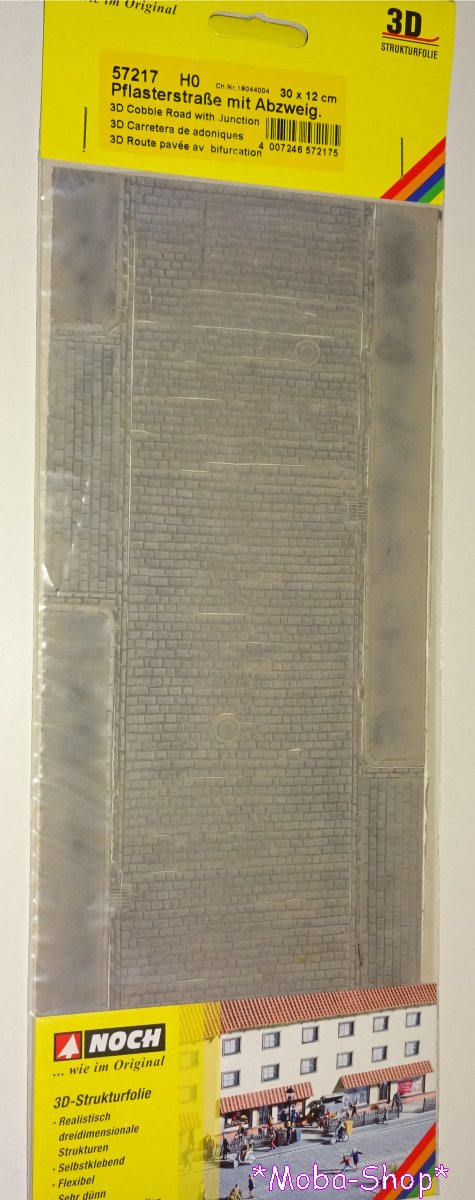 ... wie im Original
3D
STRUKTURFOLIE
57217 H0 Ch.Nr.18044004 30 x 12 cm
Pflasterstraße mit Abzweig.
3D Cobble Road with Junction
3D Carretera de adoniques
3D Route pavée av bifurcation
4 007246 572175
NOCH
... wie im Original
3D-Strukturfolie
• Realistisch
dreidimensionale
Strukturen
• Selbstklebend
• Flexibel
• Sehr dünn
*Moba-Shop*